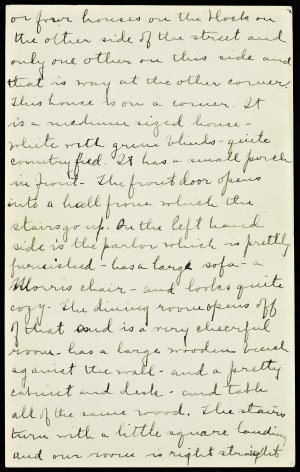 or four houses on the block on
the other side of the street and
only one other on this side and
that is way at the other corner.
This house is on a corner. It
is a medium sized house -
white with green blinds - quite
countryfied. It has a small porch
in front - The front door opens
into a hall from which the
stairs go up. On the left hand
side is the parlor which is prettily
furnished - has a large sofa - a
Morris chair - and looks quite
cozy. The dining room opens off
of that and is a very cheerful
room - has a large wooden bench
against the wall - and a pretty
cabinet and desk - and table
all of the same wood. The stairs
turn with a little square landing
and our room is right straight